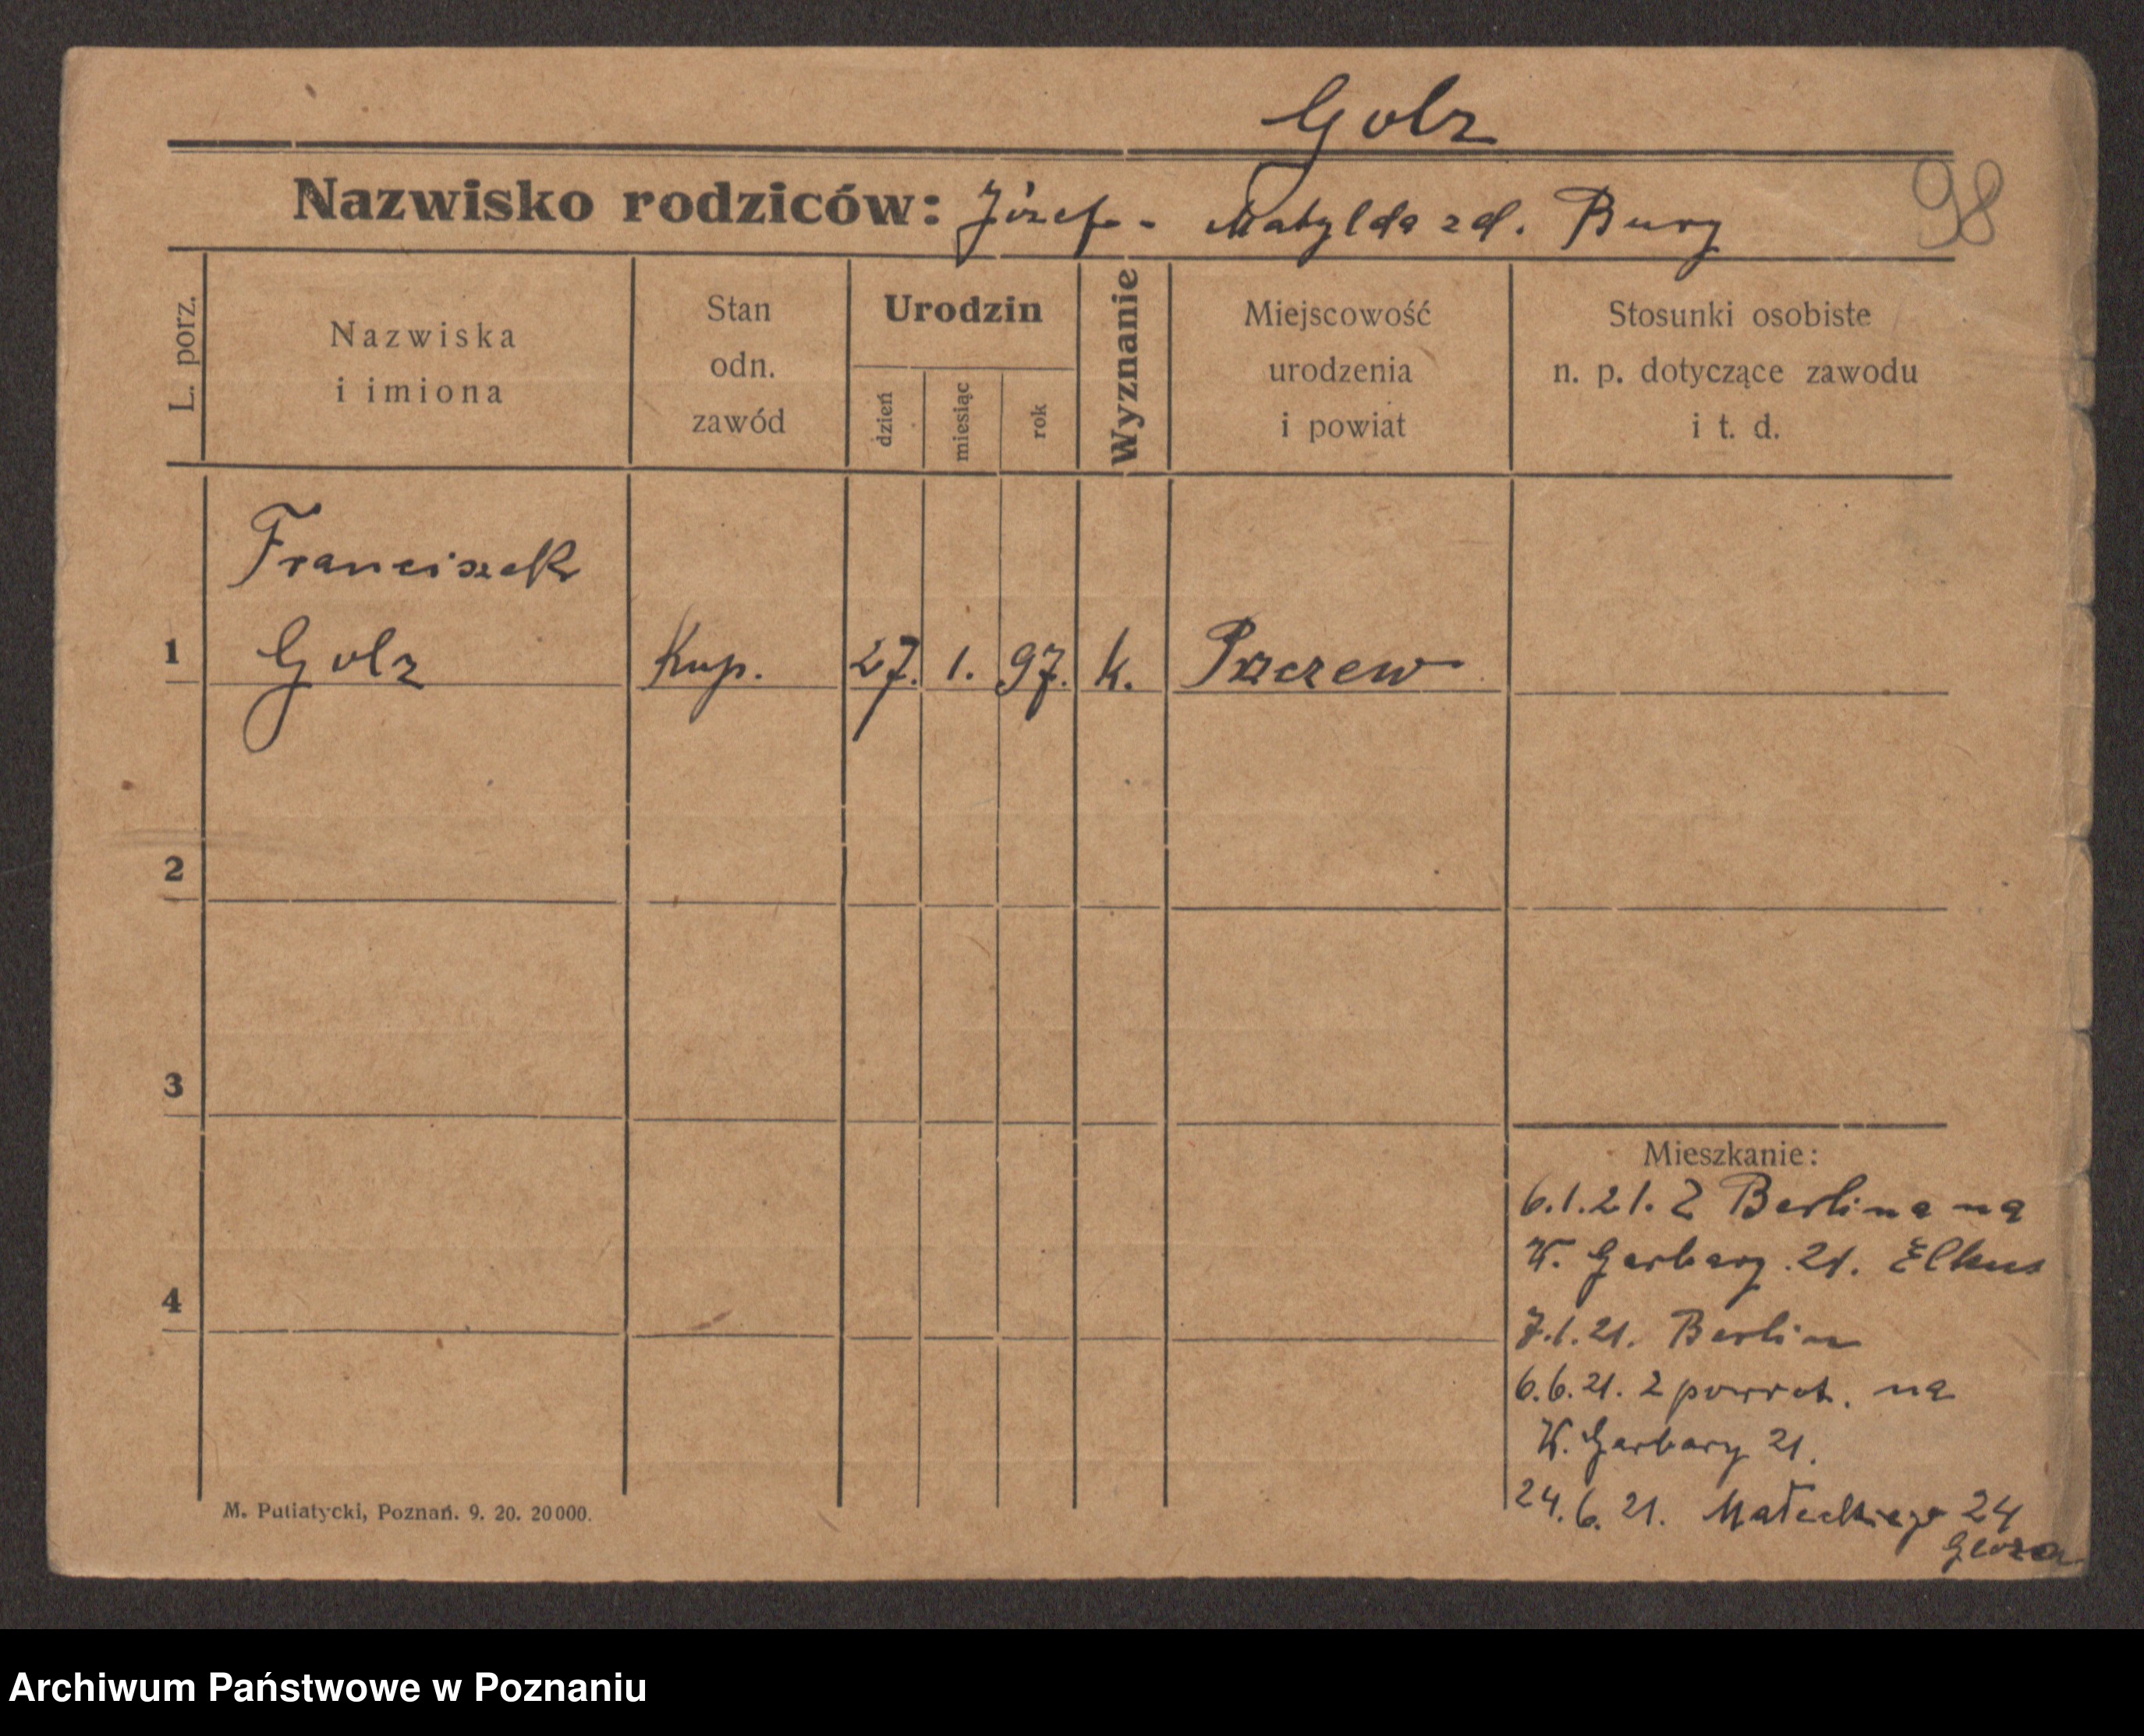 Golz
98
Nazwisko rodziców: Józef - Matylda zd. Burg
L. porz.
Nazwiska
i imiona
Stan
odn.
zawód
Urodzin
dzień
miesiąc
rok
Wyznanie
Miejscowość
urodzenia
i powiat
Stosunki osobiste
n. p. dotyczące zawodu
i t. d.
Franciszek
1 Golz Kup. 27. 1. 97. k.
2
3
4
Mieszkanie:
6.1.21. Z Berlina na
W. Garbary 21. Elkus
7.1.21. Berlin
6.6.21. z powrot. na
W. Garbary 21.
24.6.21. Małeckiego 24
M. Putiatycki, Poznań. 9. 20. 20000.
Archiwum Państwowe w Poznaniu